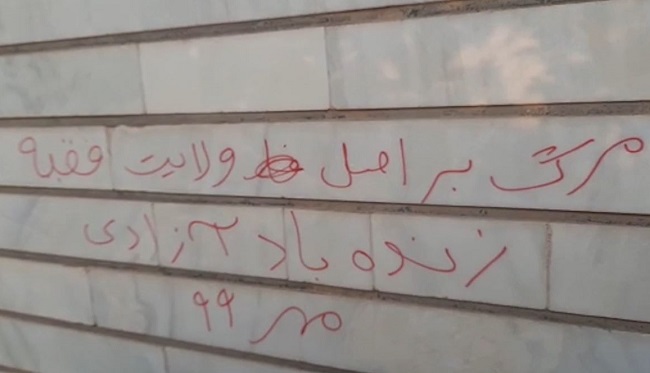 مرگ بر اصل ولایت فقیه
زنده باد آزادی
مهر ۹۹